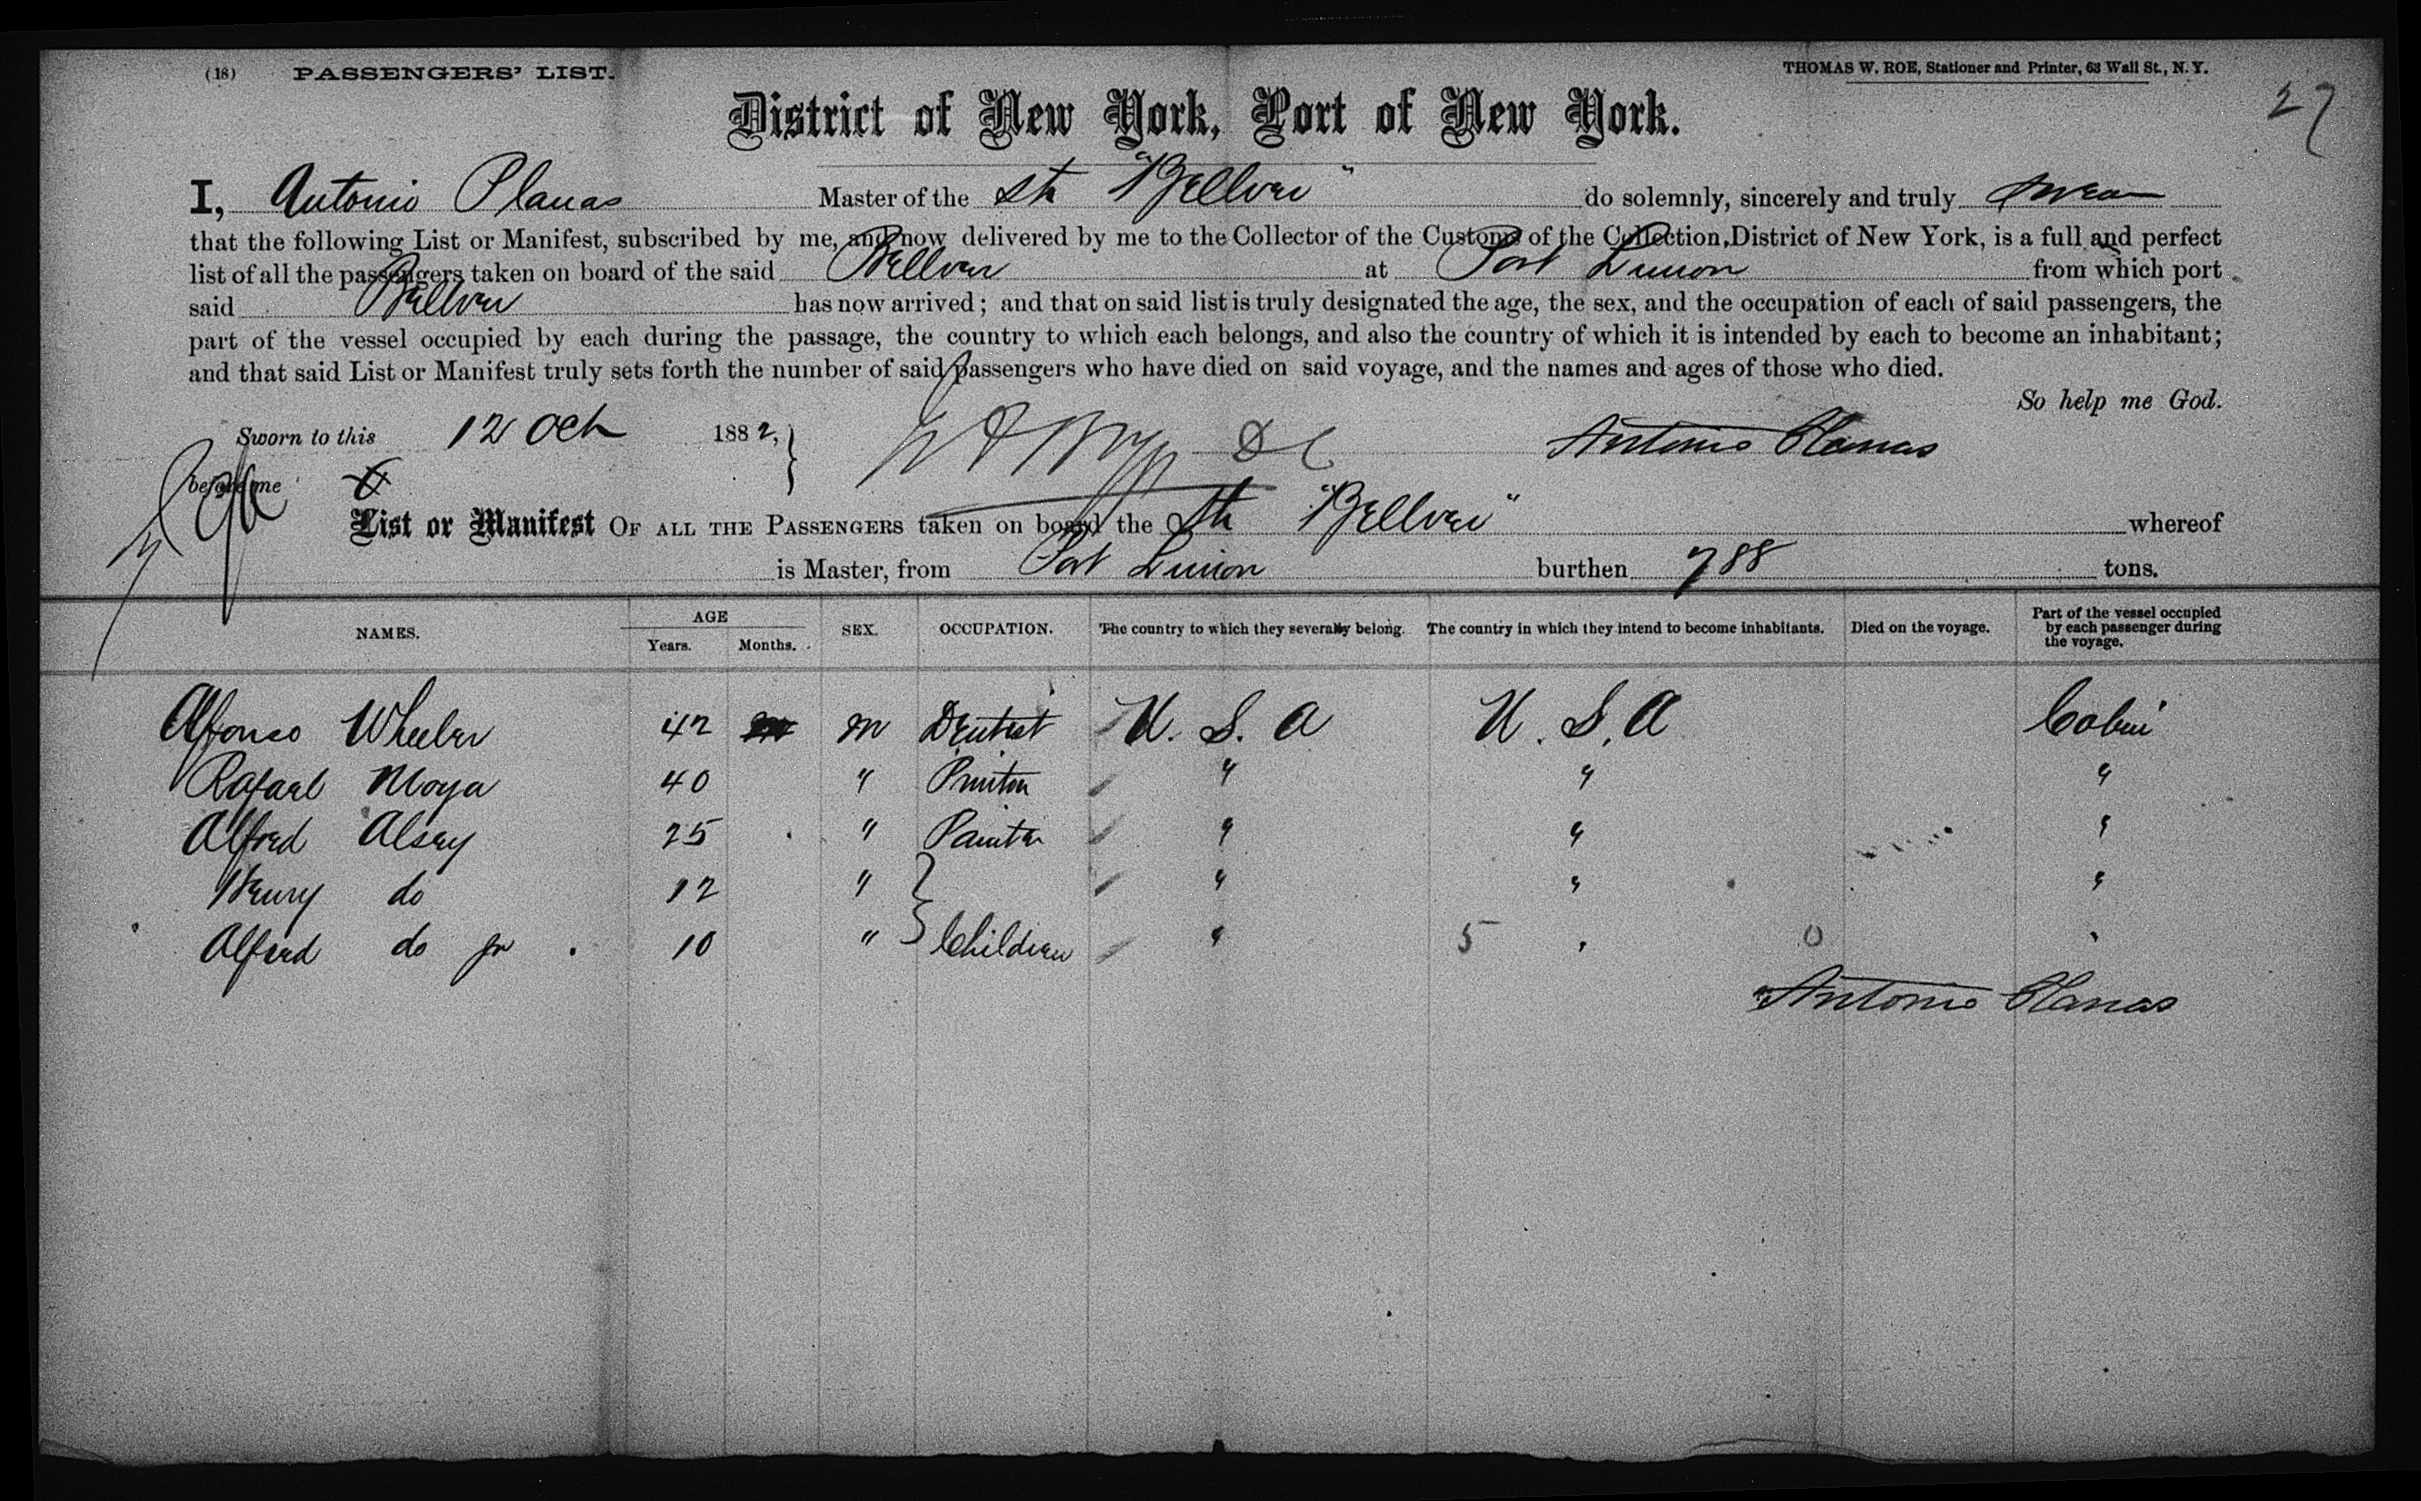 (18) PASSENGERS' LIST.
THOMAS W. ROE, Stationer and Printer, 63 Wall St., N. Y.
27
District of New York, Port of New York.
I, Antonio Planas Master of the Str "Bellver" do solemnly, sincerely and truly swear
that the following List or Manifest, subscribed by me, and now delivered by me to the Collector of the Customs of the Collection District of New York, is a full and perfect
list of all the passengers taken on board of the said Bellver at Port Limon from which port
said Bellver has now arrived; and that on said list is truly designated the age, the sex, and the occupation of each of said passengers, the
part of the vessel occupied by each during the passage, the country to which each belongs, and also the country of which it is intended by each to become an inhabitant;
and that said List or Manifest truly sets forth the number of said passengers who have died on said voyage, and the names and ages of those who died.
So help me God.
Sworn to this 12 Oct 1882, Antonio Planas
before me
List or Manifest OF ALL THE PASSENGERS taken on board the Str "Bellver" whereof
is Master, from Port Limon burthen 788 tons.
NAMES. AGE Years. Months. SEX. OCCUPATION. The country to which they severally belong. The country in which they intend to become inhabitants. Died on the voyage. Part of the vessel occupied by each passenger during the voyage.
Alfonso Wheeler 42 m Dentist U. S. A U. S. A Cabin
Rafael Moya 40 " Printer " " "
Alfred Alsey 25 " Painter " " "
Henry do 12 " " " "
Alfred do jr 10 " Children " 5 " 0 "
Antonio Planas